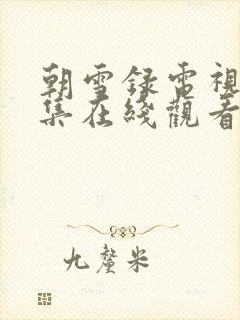 朝雪録電視
集在綫觀看
九釐米